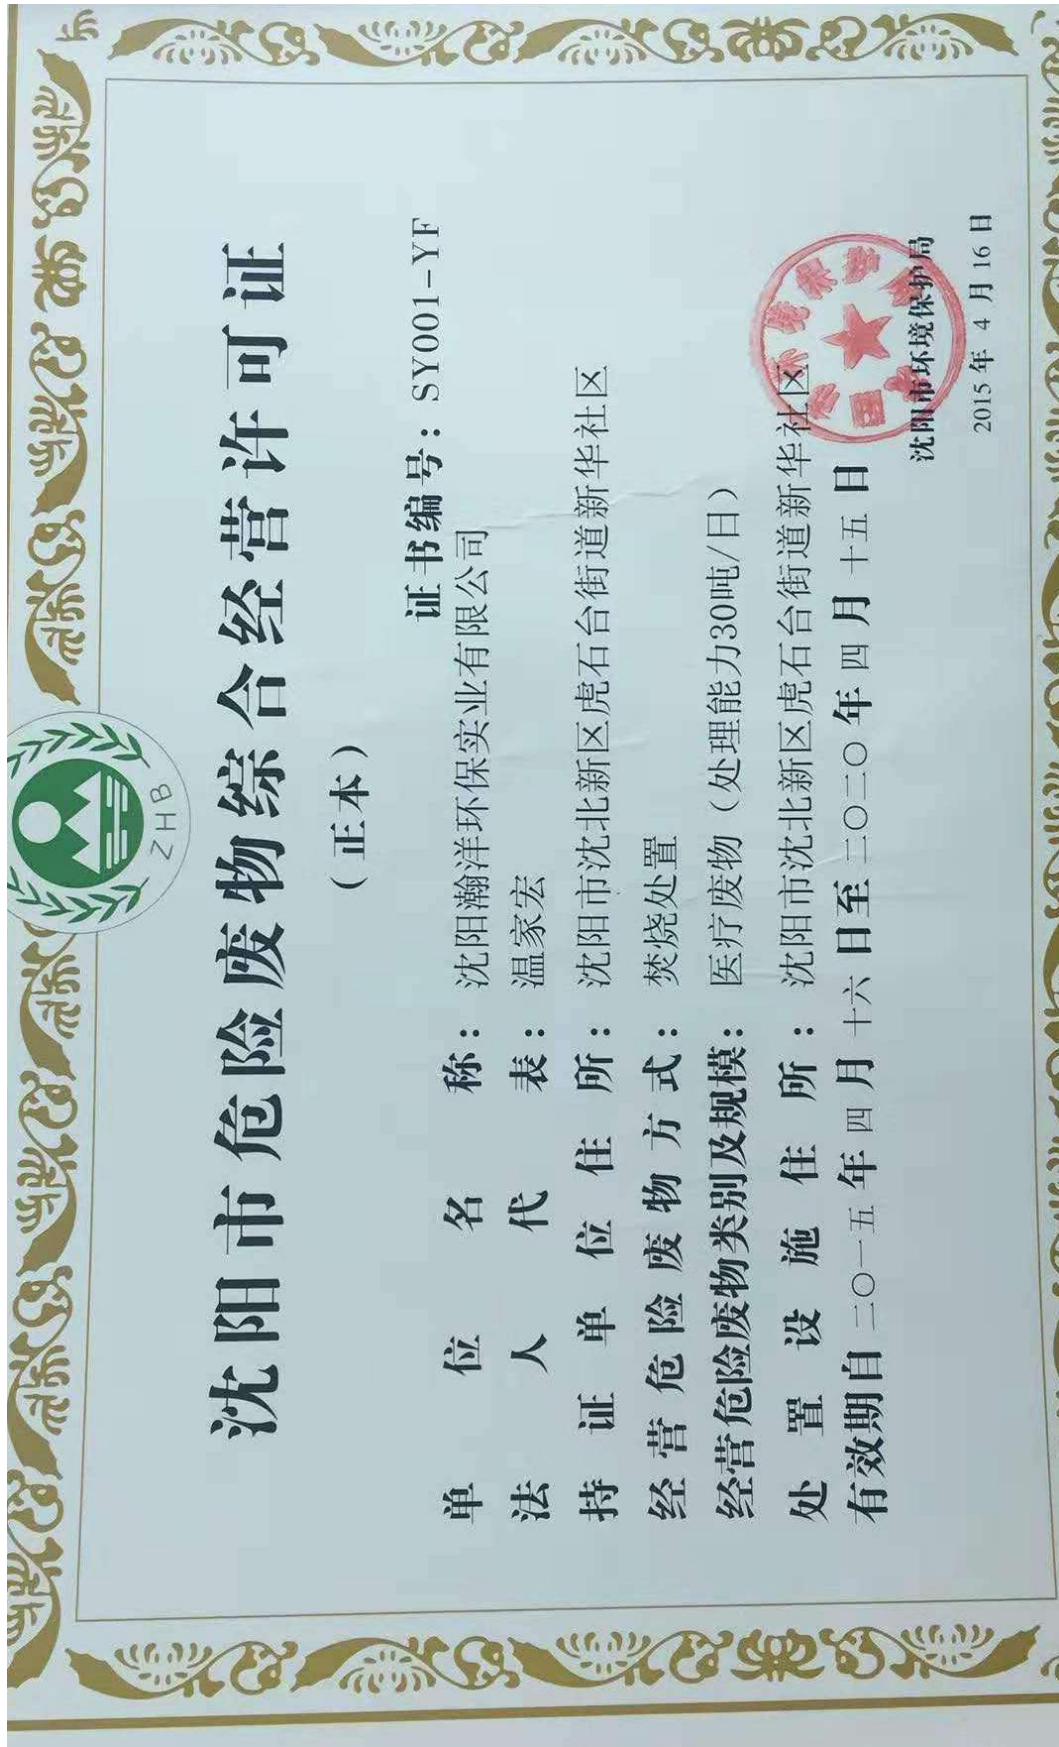 ZHB
沈阳市危险废物综合经营许可证
（正本）
证书编号：SY001-YF
单位名称：沈阳瀚洋环保实业有限公司
法人代表：温家宏
持证单位住所：沈阳市沈北新区虎石台街道新华社区
经营危险废物方式：焚烧处置
经营危险废物类别及规模：医疗废物（处理能力30吨/日）
处置设施住所：沈阳市沈北新区虎石台街道新华社区
有效期自二〇一五年四月十六日至二〇二〇年四月十五日
沈阳市环境保护局
2015年4月16日